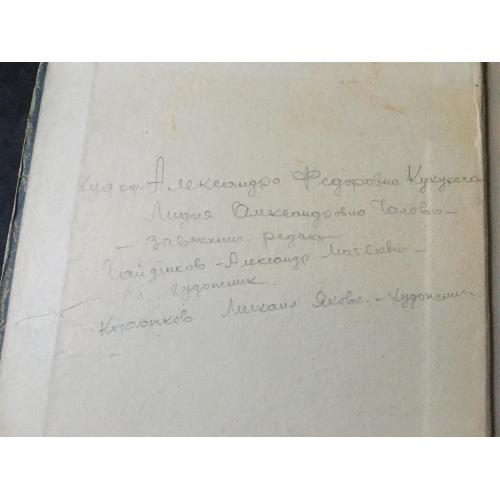 Худ оф. Александра Федоровна Кукуреча
Лидия Александровна Чалова —
— Зав техн. редакц
Гайдиков - Александр Матвеевич -
Гл. художник.
Коротков Михаил Яковл. - Художник